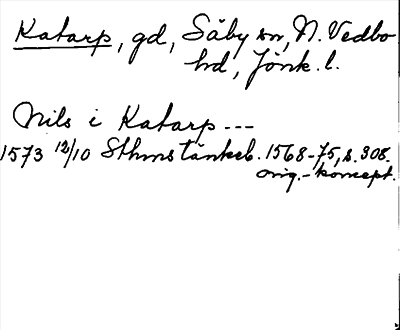 Katarp, gd, Säby sn, N. Vedbo
hd, Jönk. l.
Nils i Katarp ---
1573 12/10 Sthms tänkeb. 1568-75, s. 308.
orig.-koncept.